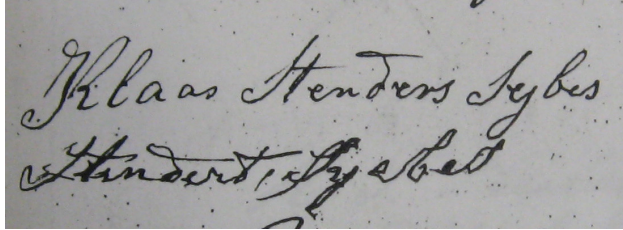 Klaas Henders Sybes
Hindert, Sysbes